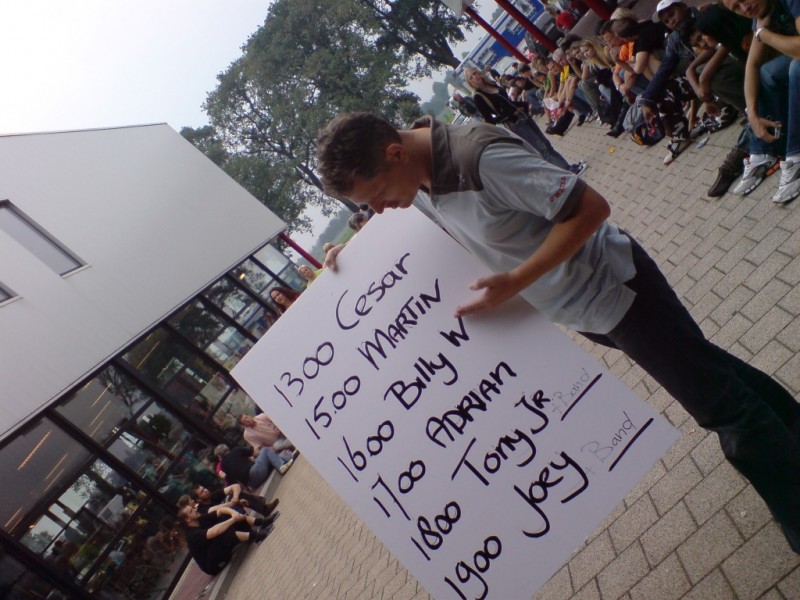 1300 Cesar
15.00 MARTIN
1600 Billy W
1700 ADRIAN
1800 Tony JR + Band
1900 Joey + Band